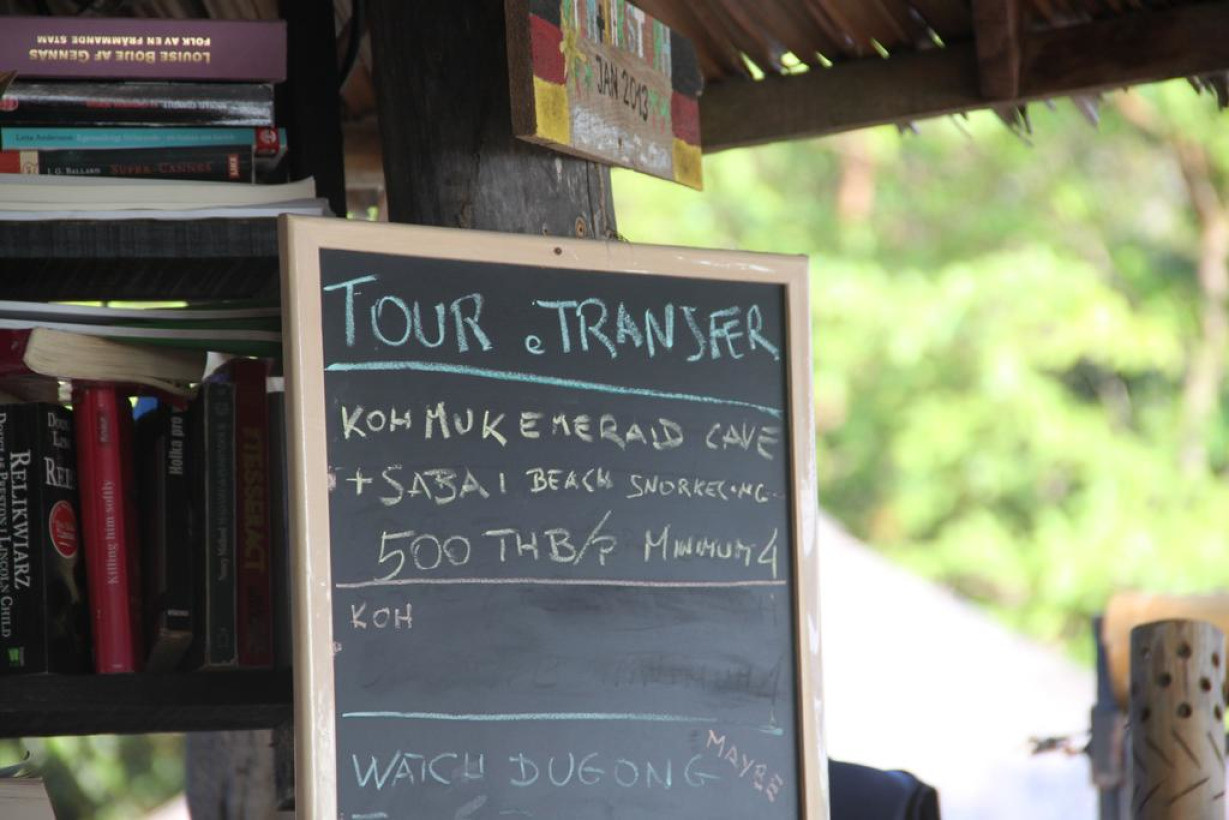 LOUISE BOIJE AF GENNÄS
FOLK AV EN FRÄMMANDE STAM
J. G. BALLARD SUPER-CANNES
JAN 2013
TOUR e TRANSFER
KOH MUK EMERALD CAVE
+ SABAI BEACH SNORKELING
500 THB/P MINIMUM 4
KOH
MINIMUM 4
WATCH DUGONG
MAYBE
RELIKWIARZ
DOUGLAS PRESTON LINCOLN CHILD
Killing him softly
Holka pro
TESSERACT